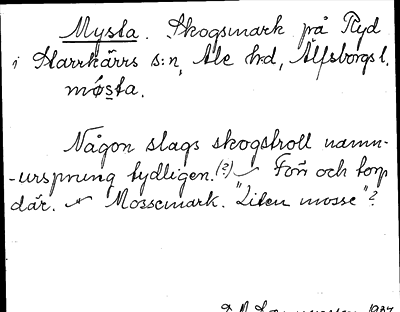 Mysla. Skogsmark på Ryd
i Starrkärrs s:n, Ale h:d, Älfsborgs l.
mǿsta.
Någon slags skogstroll namn-
-ursprung tydligen. (?) Förr och torp
där. Mossemark. "Liten mosse"?
1937